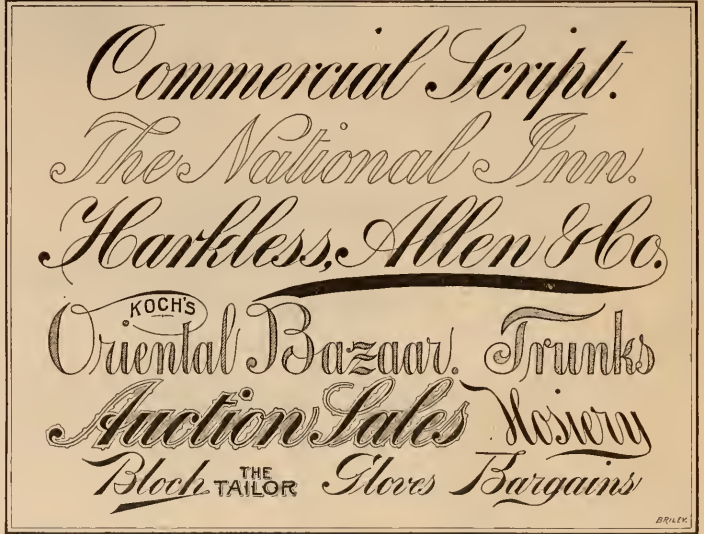 Commercial Script.
The National Inn.
Harkless, Allen & Co.
KOCH'S
Oriental Bazaar. Trunks
Auction Sales Hosiery
Bloch THE TAILOR Gloves Bargains
BRILEY.